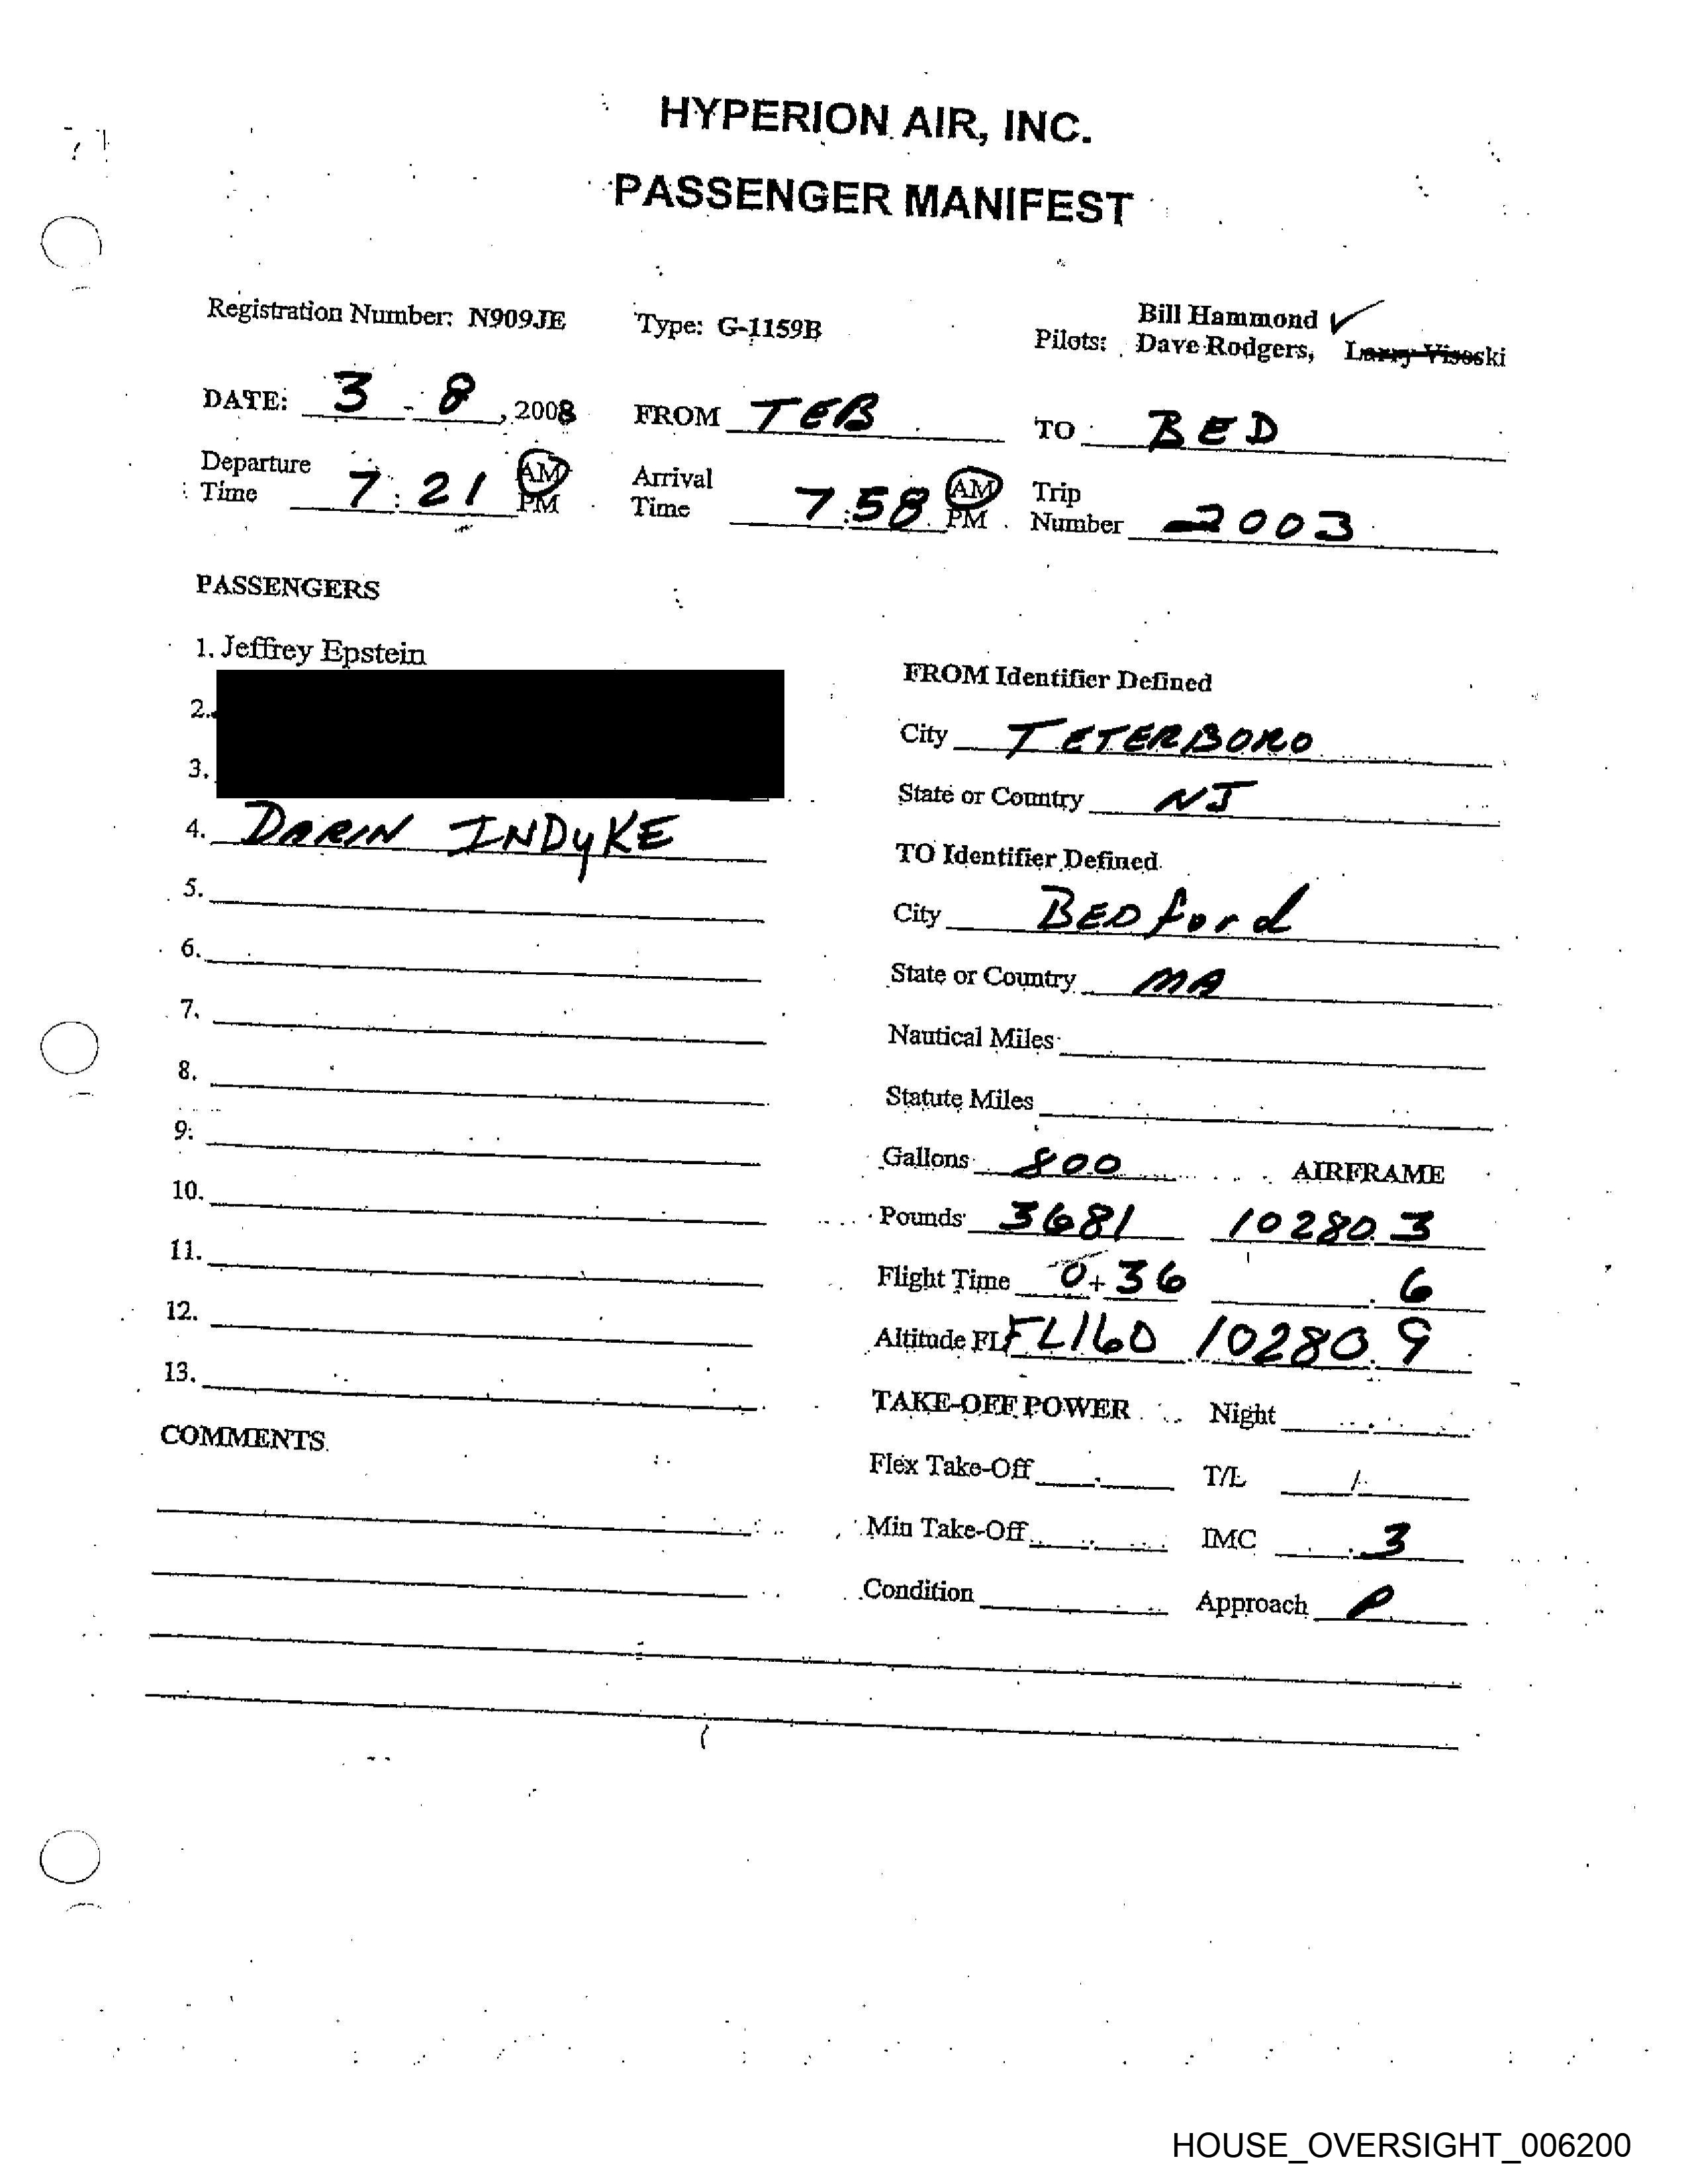 HYPERION AIR, INC.
PASSENGER MANIFEST
Registration Number: N909JE Type: G-1159B Pilots: Bill Hammond ✓
Dave Rodgers, Larry Visoski
DATE: 3 - 8, 2008 FROM TEB TO BED
Departure Time 7:21 AM PM Arrival Time 7:58 AM PM Trip Number 2003
PASSENGERS
1. Jeffrey Epstein
2.
3.
4. DARIN INDYKE
5.
6.
7.
8.
9.
10.
11.
12.
13.
COMMENTS
FROM Identifier Defined
City TETERBORO
State or Country NJ
TO Identifier Defined
City BEDford
State or Country MA
Nautical Miles
Statute Miles
Gallons 800 AIRFRAME
Pounds 3681 10280.3
Flight Time 0+36 .6
Altitude FL FL160 10280.9
TAKE-OFF POWER Night
Flex Take-Off T/L /
Min Take-Off IMC .3
Condition Approach P
HOUSE_OVERSIGHT_006200